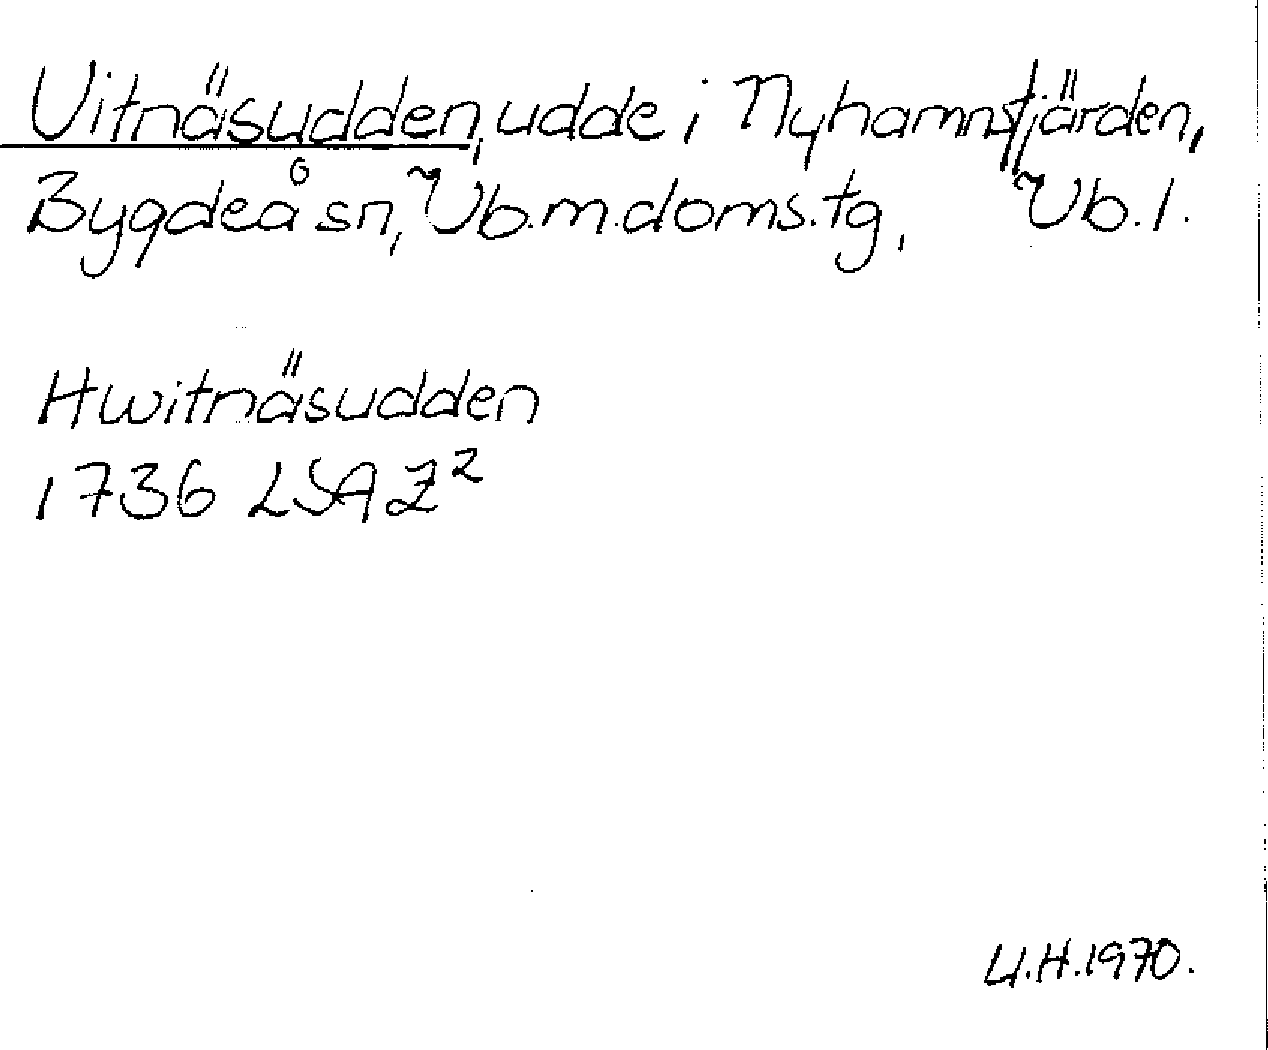 Vitnäsudden, udde i Nyhamnsfjärden,
Bygdeå sn, Vb.m.doms.tg, Vb.l.
Hwitnäsudden
1736 LSA Z²
U.H.1970.